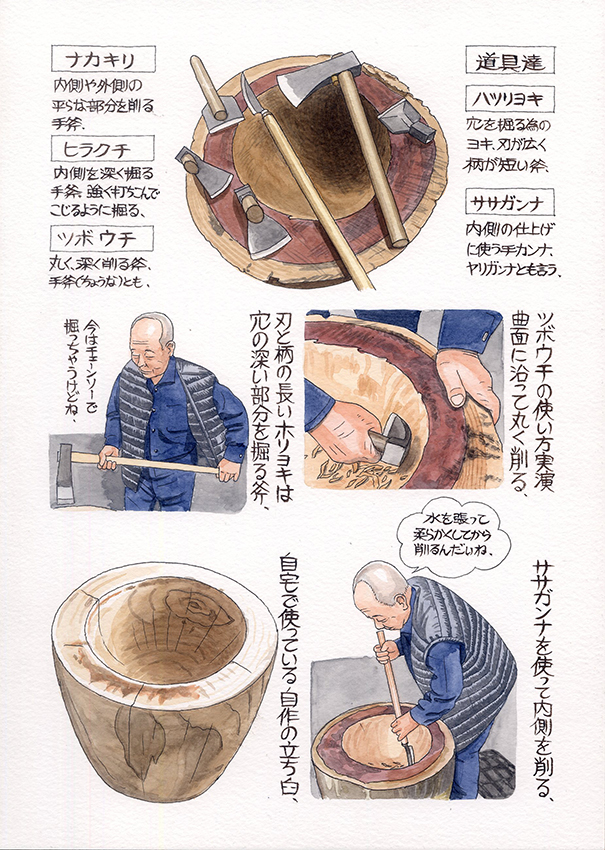 道具達
ハツリヨキ
穴を掘る為の
ヨキ、刃が広く
柄が短い斧、
ササガンナ
内側の仕上げ
に使う手カンナ、
ヤリガンナとも言う、
ナカキリ
内側や外側の
平らな部分を削る
手斧、
ヒラクチ
内側を深く掘る
手斧、強く打ちこんで
こじるように掘る、
ツボウチ
丸く、深く削る斧、
手斧(ちょうな)とも、
ツボウチの使い方実演
曲面に沿って丸く削る、
刃と柄の長いホリヨキは
穴の深い部分を掘る斧、
今はチェーンソーで
掘っちゃうけどね、
ササガンナを使って内側を削る、
水を張って
柔らかくしてから
削るんだいね、
自宅で使っている自作の立ち臼、